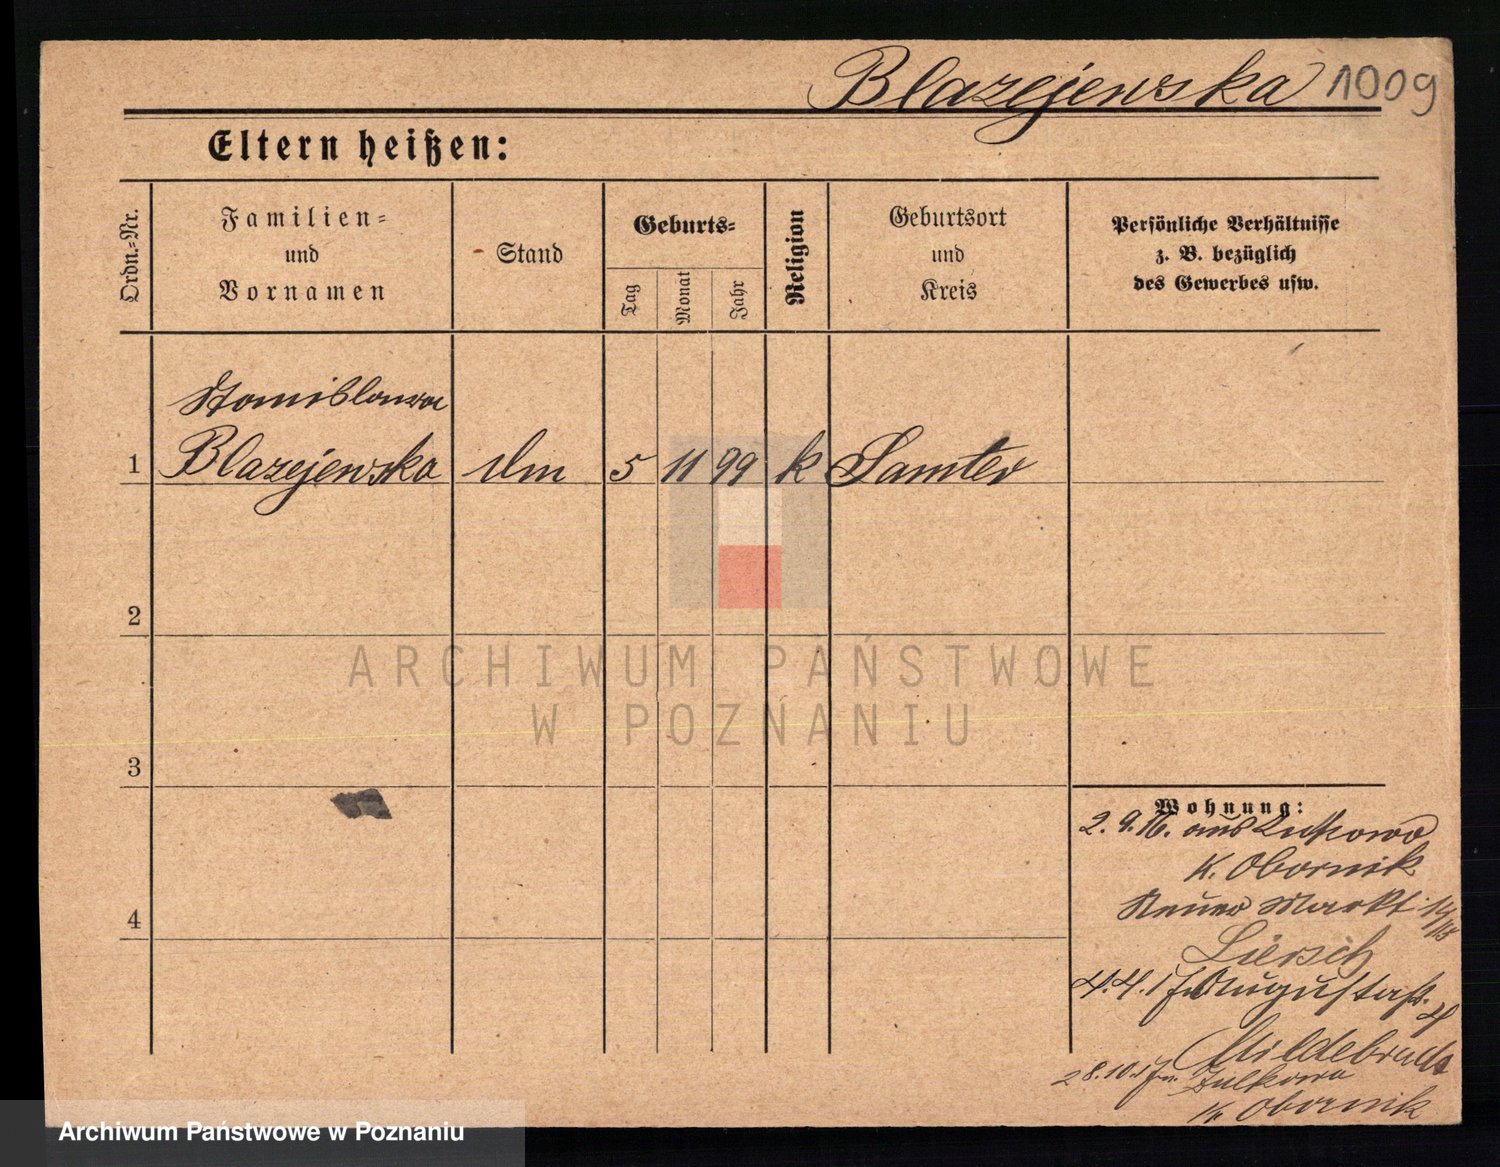 Blazejewska 1009
Eltern heißen:
Ordn.-Nr.
Familien-
und
Vornamen
Stand
Geburts-
Tag
Monat
Jahr
Religion
Geburtsort
und
Kreis
Persönliche Verhältnisse
z. B. bezüglich
des Gewerbes usw.
Stanislawa
1 Blazejewska dm 5 11 99 k Samter
2
ARCHIWUM PAŃSTWOWE
W POZNANIU
3
Wohnung:
2. 9. 16. aus
K. Obornik
4
Neuer Markt
Liersch
4. 4. 17 Augustast. 4
Hildebrandt
28. 10.
K. Obornik
Archiwum Państwowe w Poznaniu